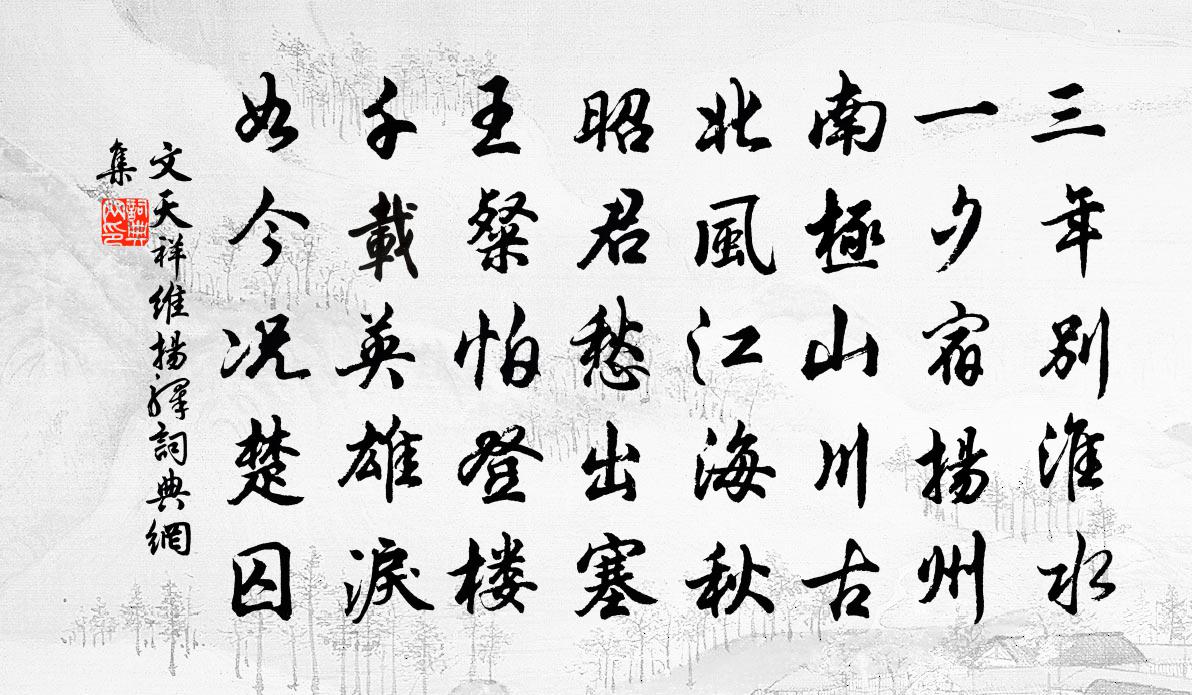 三年別淮水
一夕宿揚州
南極山川古
北風江海秋
昭君愁出塞
王粲怕登楼
千載英雄淚
如今况楚囚
文天祥維揚驛詞典網
集
詞典網印